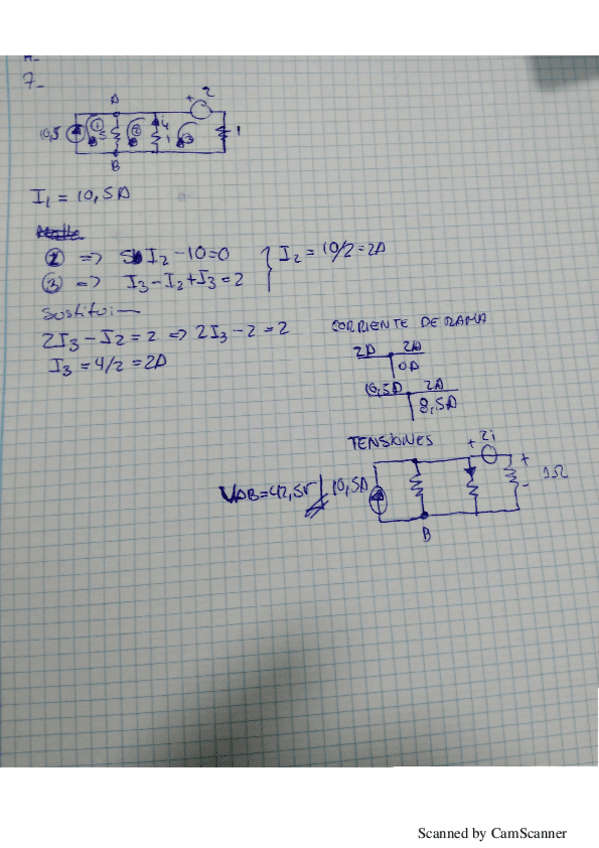 7-
A
+
2
10,5
1
5
2
i
1
3
1
B
I₁ = 10,5A
② => 5 I₂ - 10 = 0
③ => I₃ - I₂ + I₃ = 2
I₂ = 10/2 = 2A
Sustitui
2I₃ - I₂ = 2 => 2I₃ - 2 = 2
I₃ = 4/2 = 2A
CORRIENTE DE RAMA
2A 2A
0A
10,5A 2A
8,5A
TENSIONES
+ 2i
+
-
1Ω
VAB = 42,5V
10,5A
B
Scanned by CamScanner